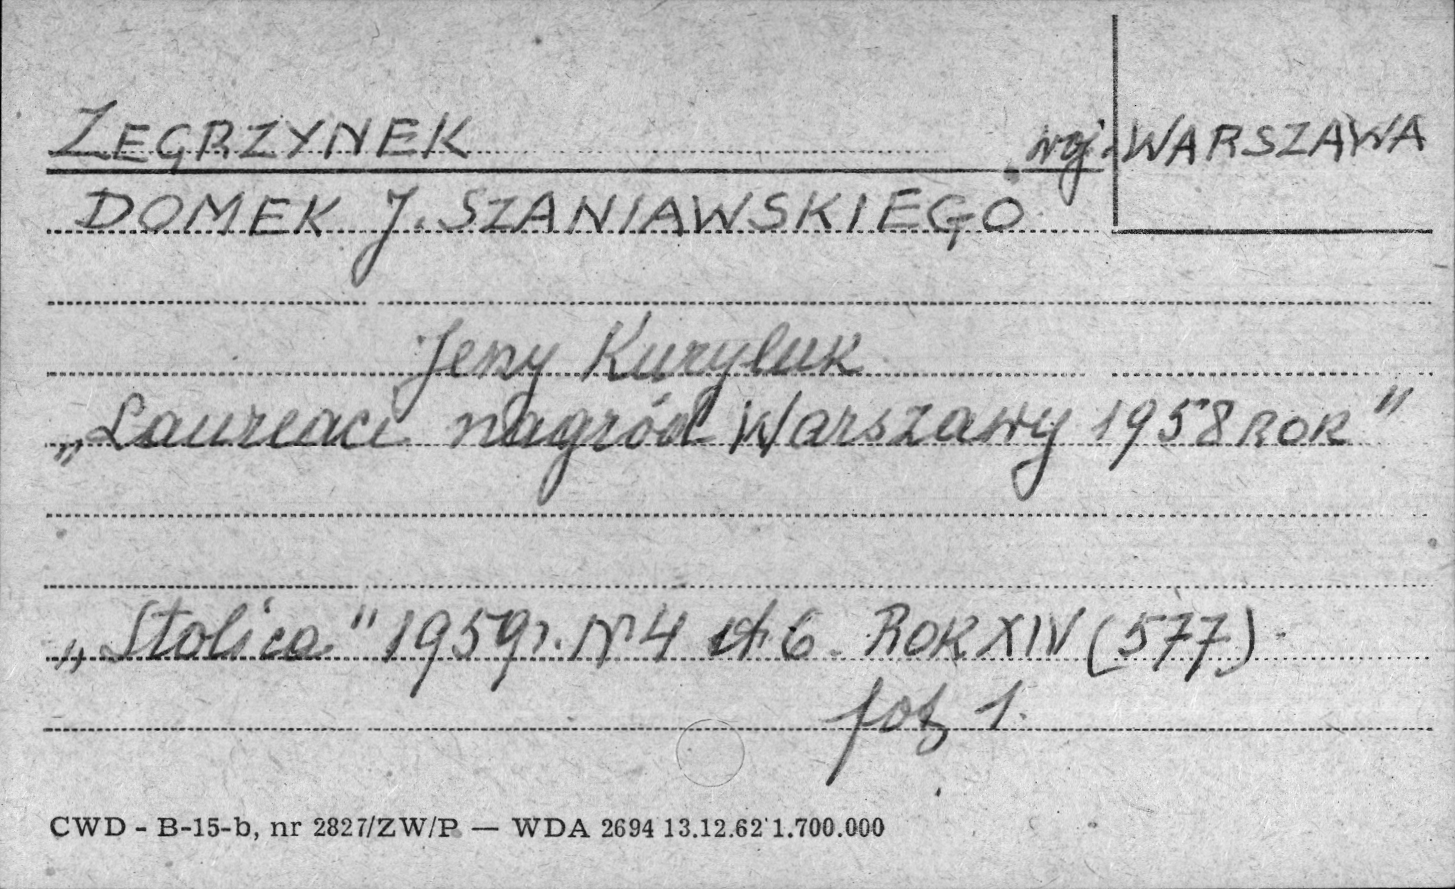 ZEGRZYNEK woj. WARSZAWA
DOMEK J. SZANIAWSKIEGO
Jerzy Kuryluk
„Laureaci nagród Warszawy 1958 ROK"
„Stolica" 1959 r. Nr 4 str 6. ROK XIV (577).
fot 1.
CWD - B-15-b, nr 2827/ZW/P — WDA 2694 13.12.62 1.700.000